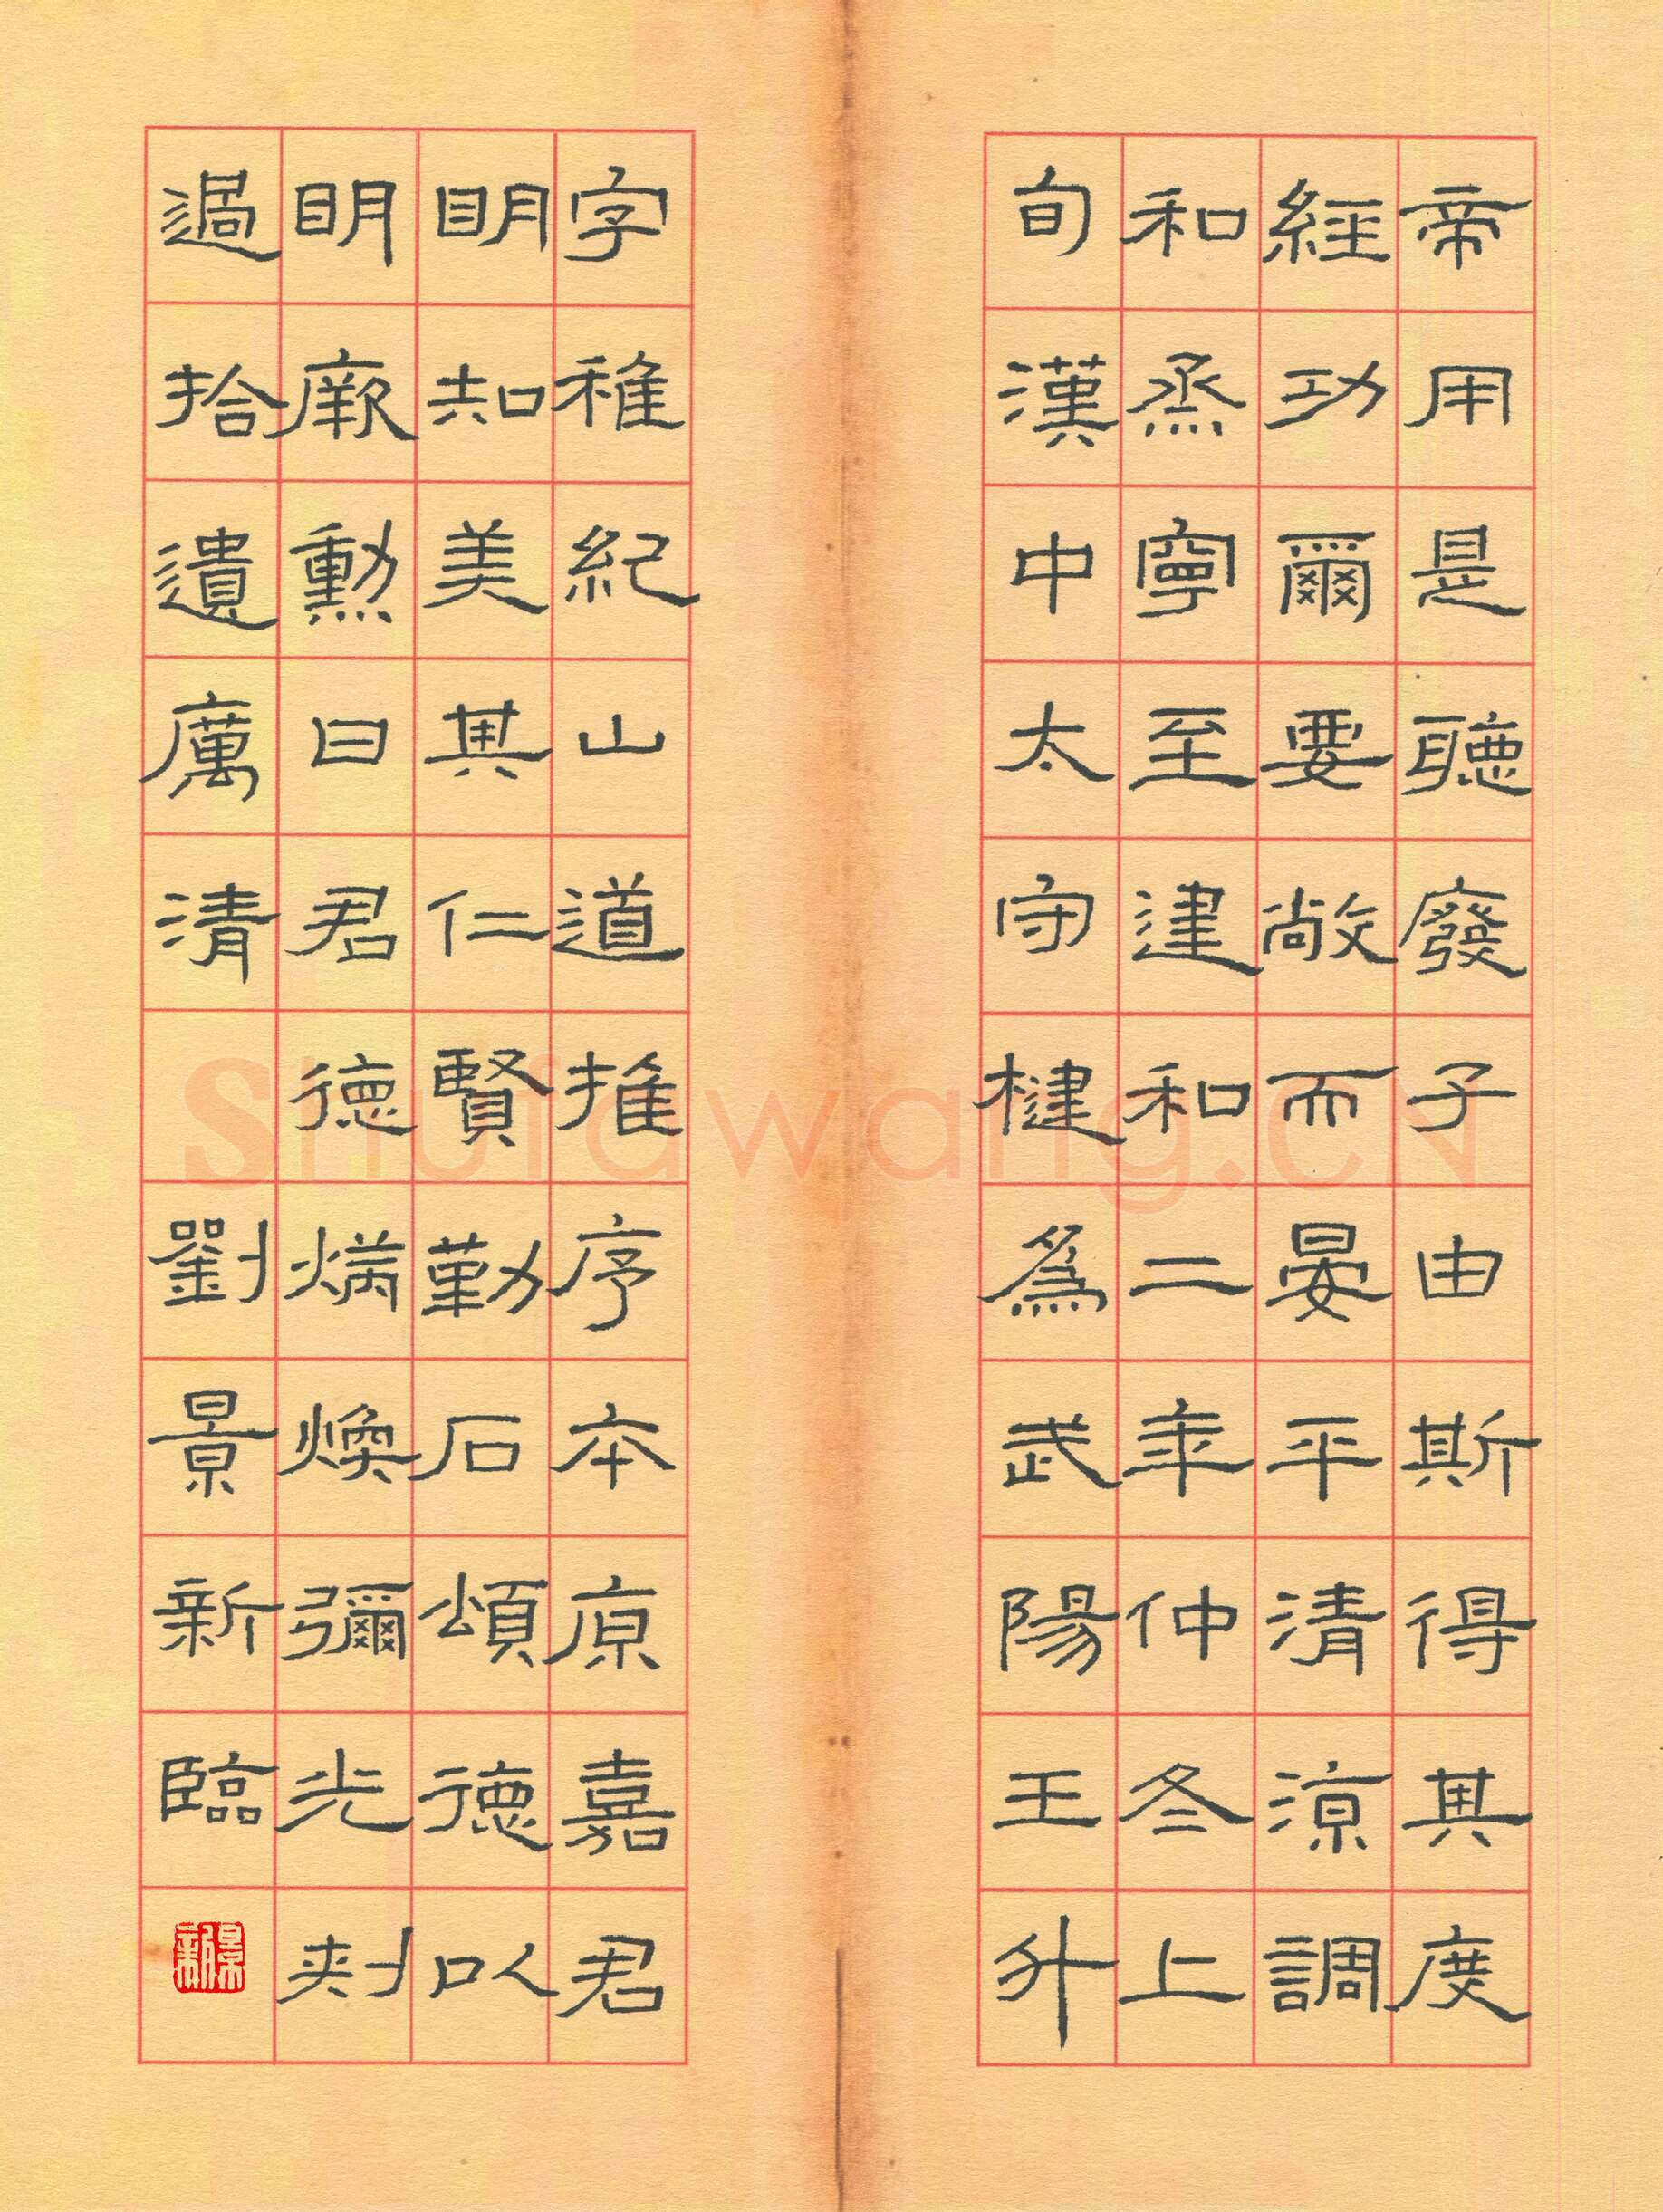 帝用是聽廢子由斯得其度
經功爾要敞而晏平清涼調
和烝寧至建和二年仲冬上
旬漢中太守楗為武陽王升
字稚紀山道推序本原嘉君
明知美其仁賢勤石頌德以
明厥勳曰君德明明煥彌光刺
過拾遺厲清
劉景新臨
景新
Shufawang.CN